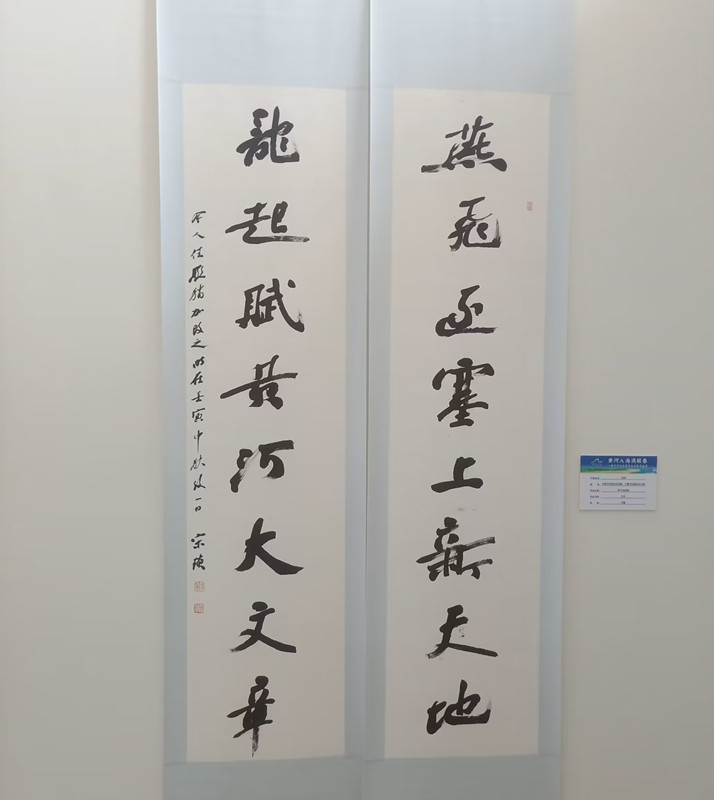 燕飛逐塞上新天地
龍起賦黃河大文章
人佳聯稍加改之时在壬寅中秋後一日
黄河入海